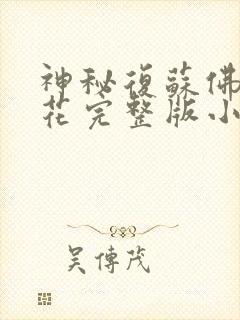 神秘復蘇佛
花完整版小
吴傳茂